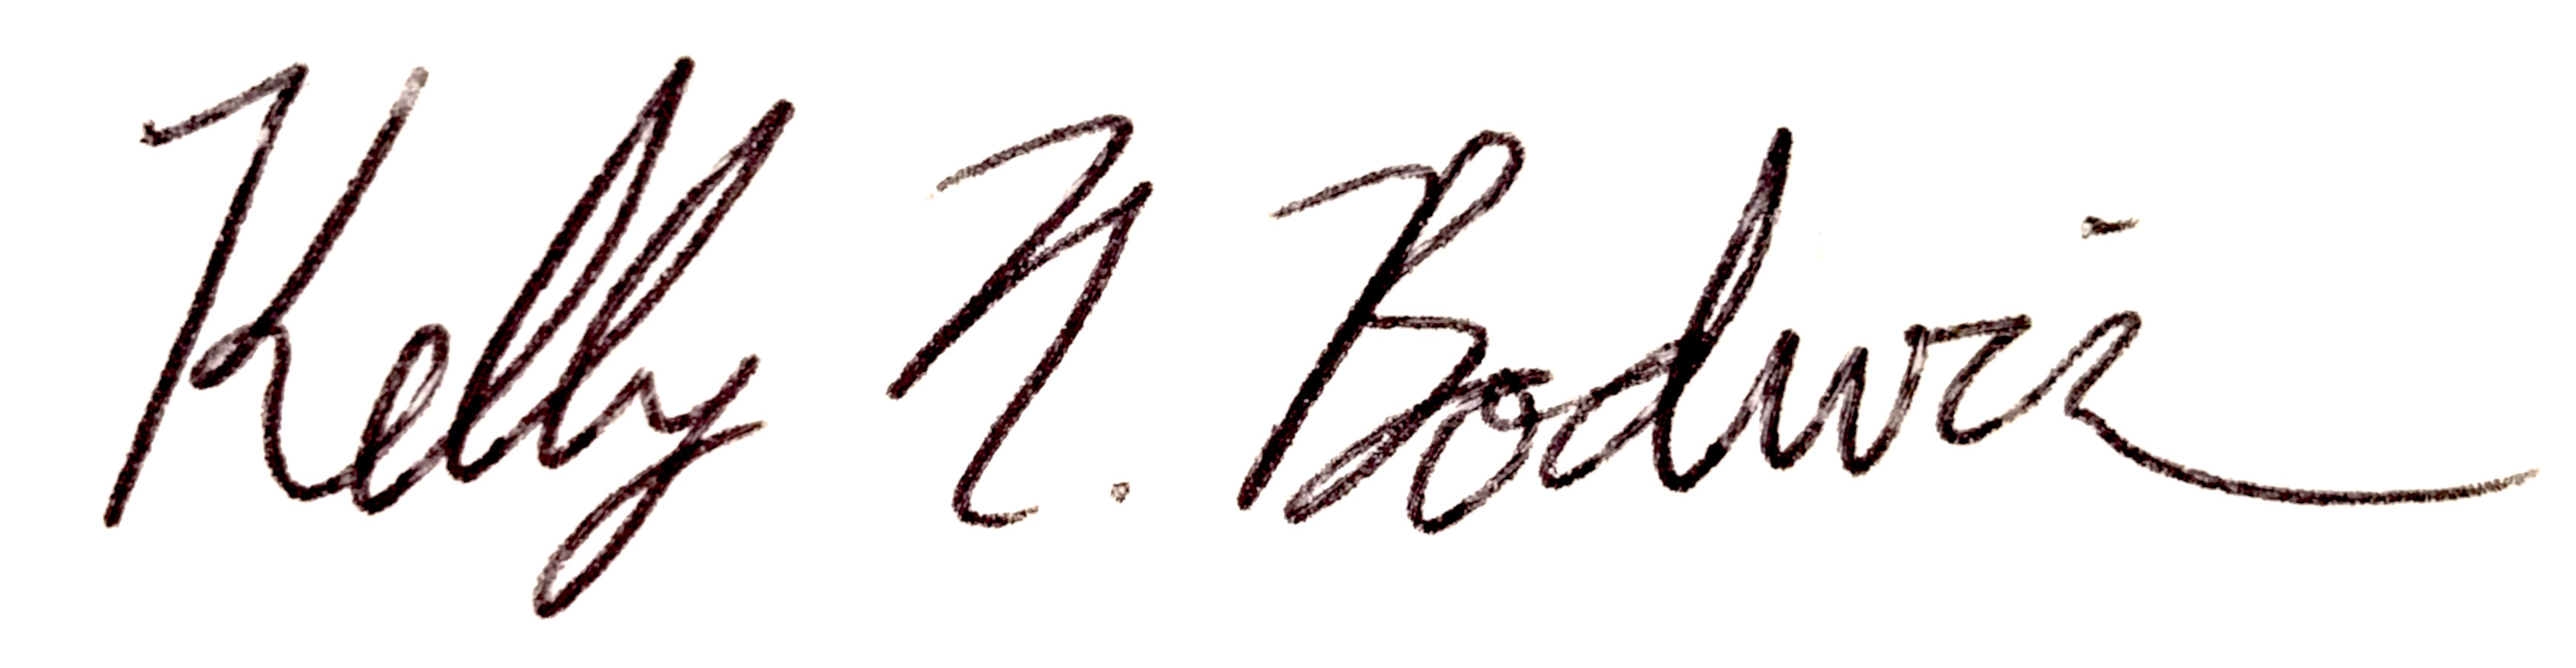 Kelly N. Bodwin